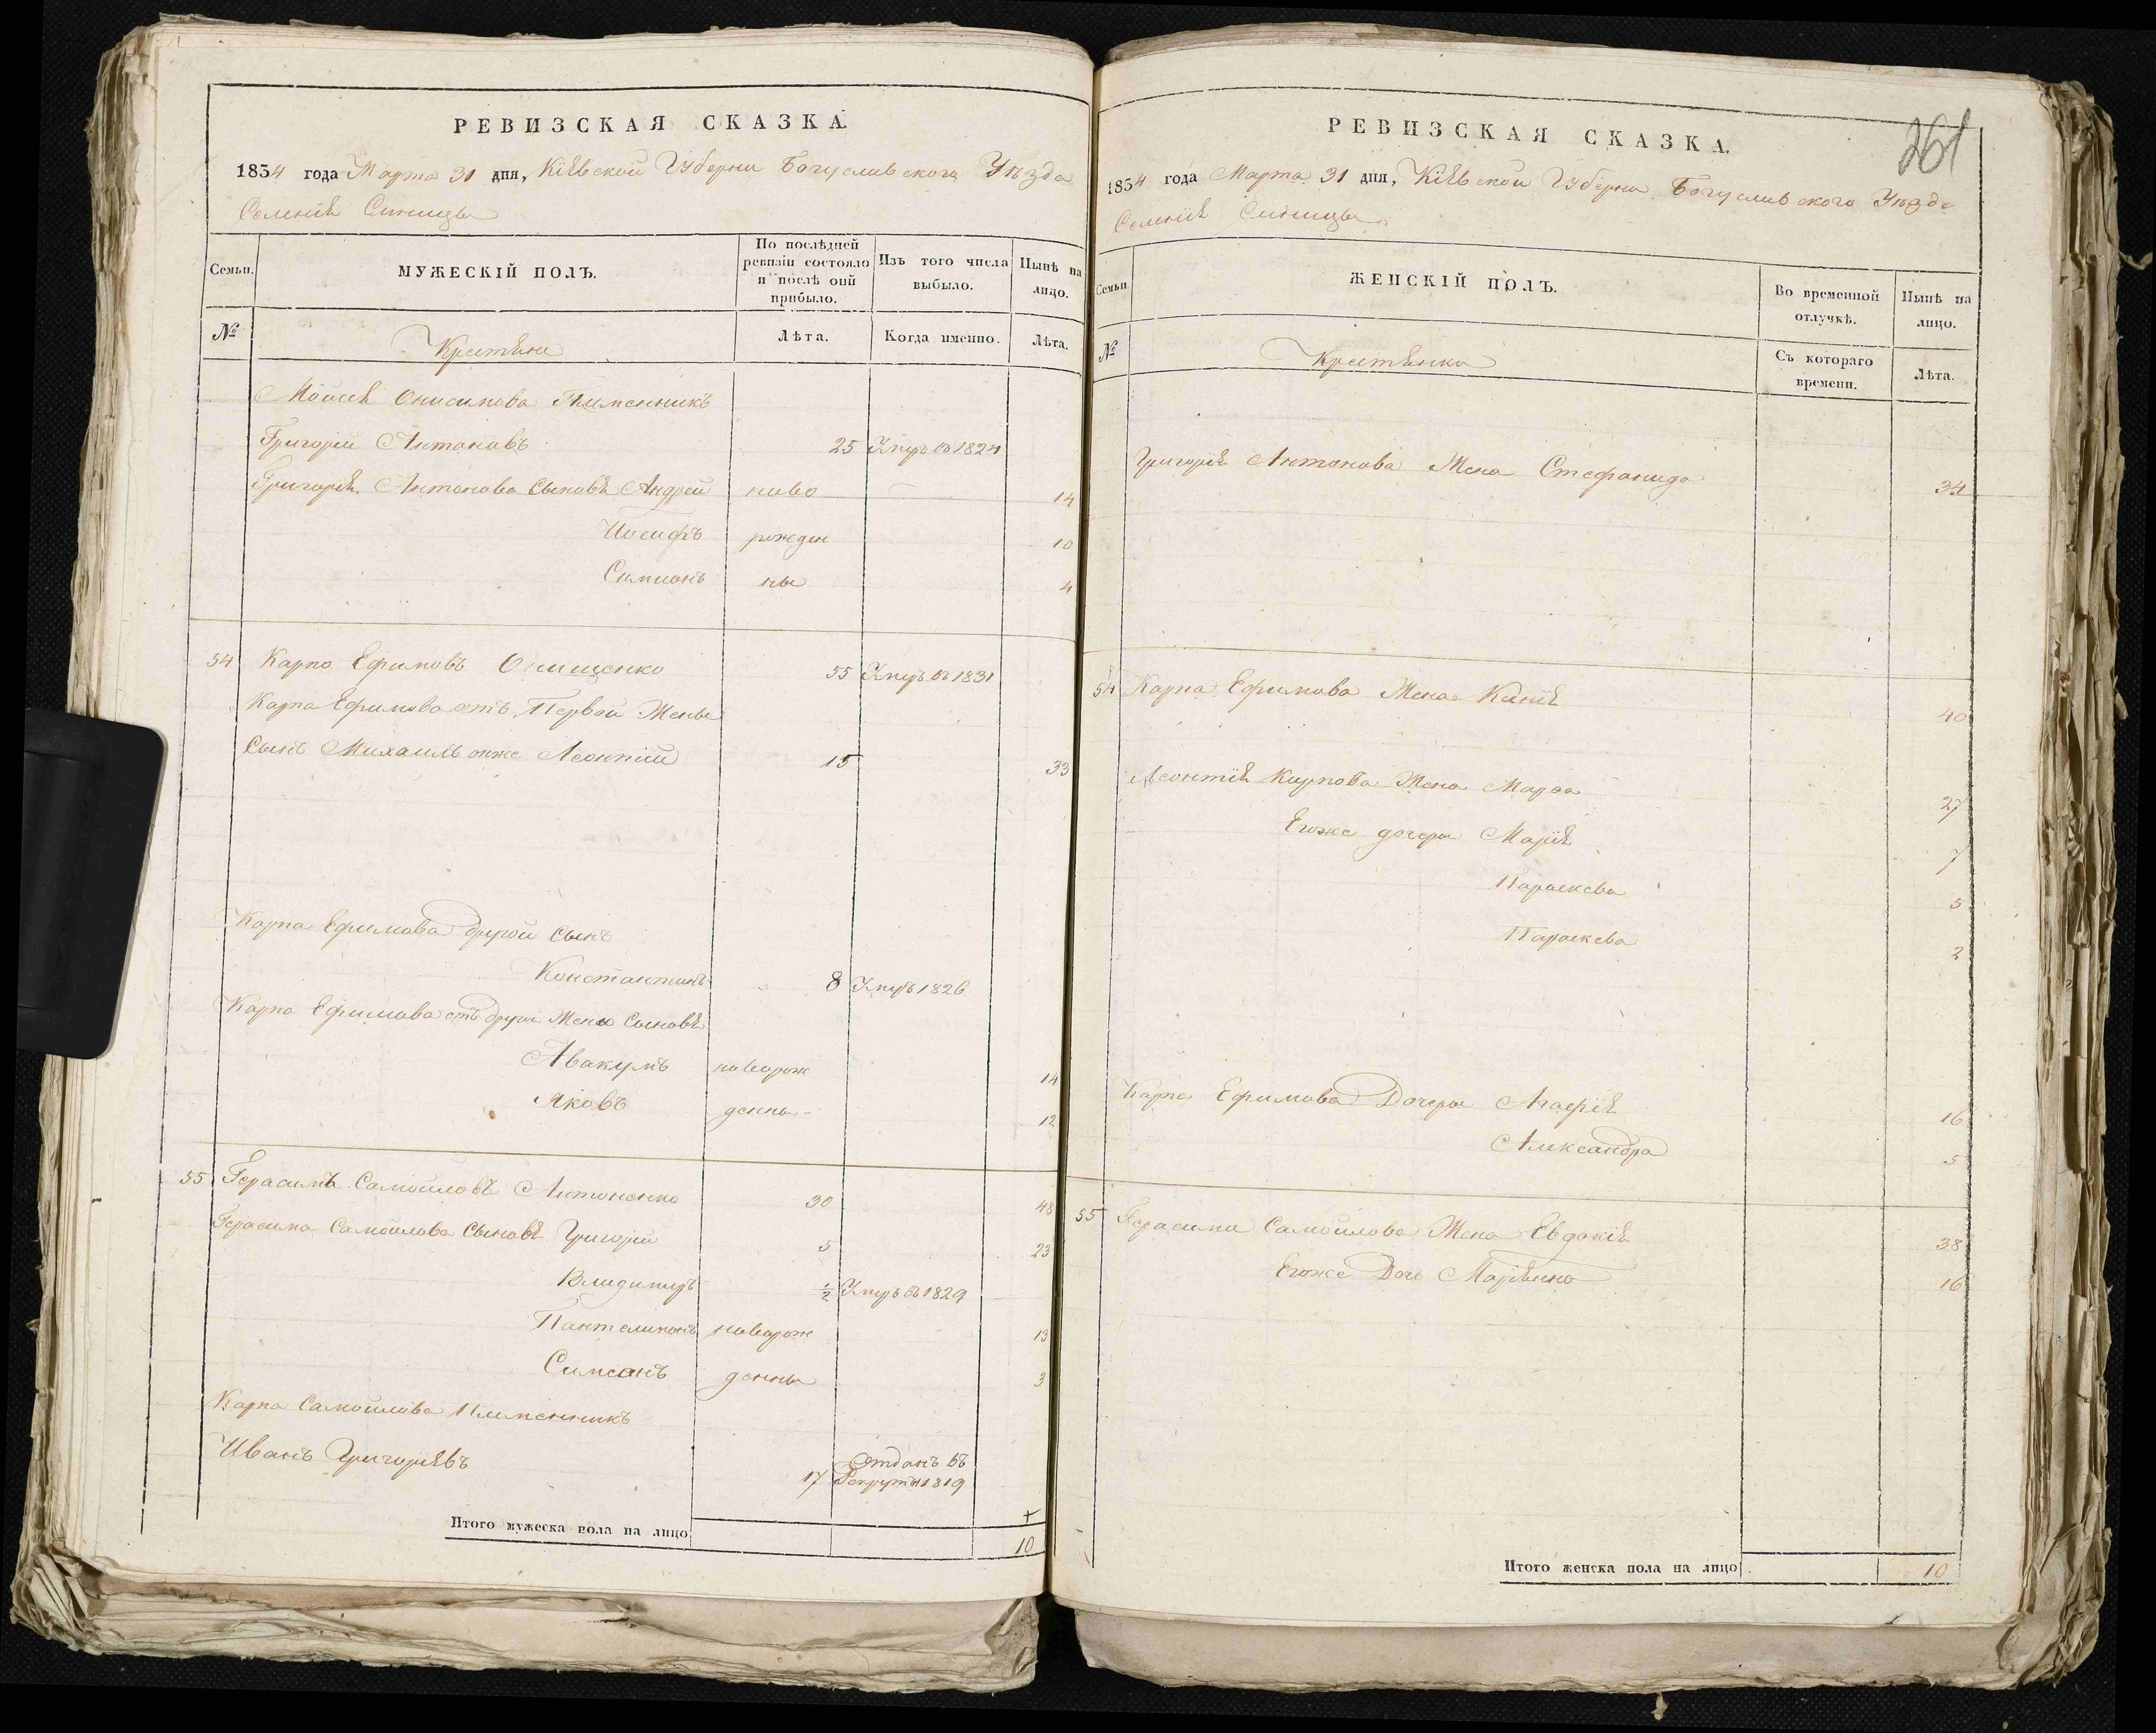 РЕВИЗСКАЯ СКАЗКА.
1834 года Марта 31 дня, Кіевской Губерни Богуславского Уезда
Селенія Синицы
Семьи.
МУЖЕСКІЙ ПОЛЪ.
По послѣдней ревизіи состояло и послѣ оній прибыло.
Изъ того числа выбыло.
Нынѣ на лицо.
№
Крестяне
Лѣта.
Когда именно.
Лѣта.
Мойсея Онисимова Племенникъ
Григорій Антоновъ 25 Умръ въ 1824
Григорія Антонова Сыновя Андрей ново 14
Иосифъ рожден 10
Симионъ ны 4
54 Карпо Ефимовъ Онищенко 55 Умръ въ 1831
Карпа Ефимова отъ Первой Жены
Сынъ Михаилъ онже Леонтій 15 33
Карпа Ефимова другой Сынъ
Константинъ 8 Умръ 1826
Карпа Ефимова отъ другой Жены Сыновя
Авакумъ новорож 14
Яковъ денны 12
55 Герасимъ Самойловъ Антоненко 30 48
Герасима Самойлова Сыновя Григорій 5 23
Владимиръ ½ Умръ въ 1829
Пантелимонъ новорож 13
Симеонъ денны 3
Карпа Самойлова Племенникъ
Иванъ Григоріевъ 17 Отданъ въ Рекруты 1819
Итого мужеска пола на лицо 10
261
РЕВИЗСКАЯ СКАЗКА.
1834 года Марта 31 дня, Кіевской Губерни Богуславского Уезда
Селенія Синицы
Семьи
ЖЕНСКІЙ ПОЛЪ.
Во временной отлучкѣ.
Нынѣ на лицо.
№
Крестянки
Съ котораго времени.
Лѣта.
Григорія Антонова Жена Стефанида 34
54 Карпа Ефимова Жена Ксенія 40
Леонтія Карпова Жена Марѳа 27
Егоже дочери Марія 7
Параскева 5
Параскева 2
Карпа Ефимова Дочери Агафія 16
Александра 5
55 Герасима Самойлова Жена Евдокія 38
Егоже Доч Маріянна 16
Итого женска пола на лицо 10